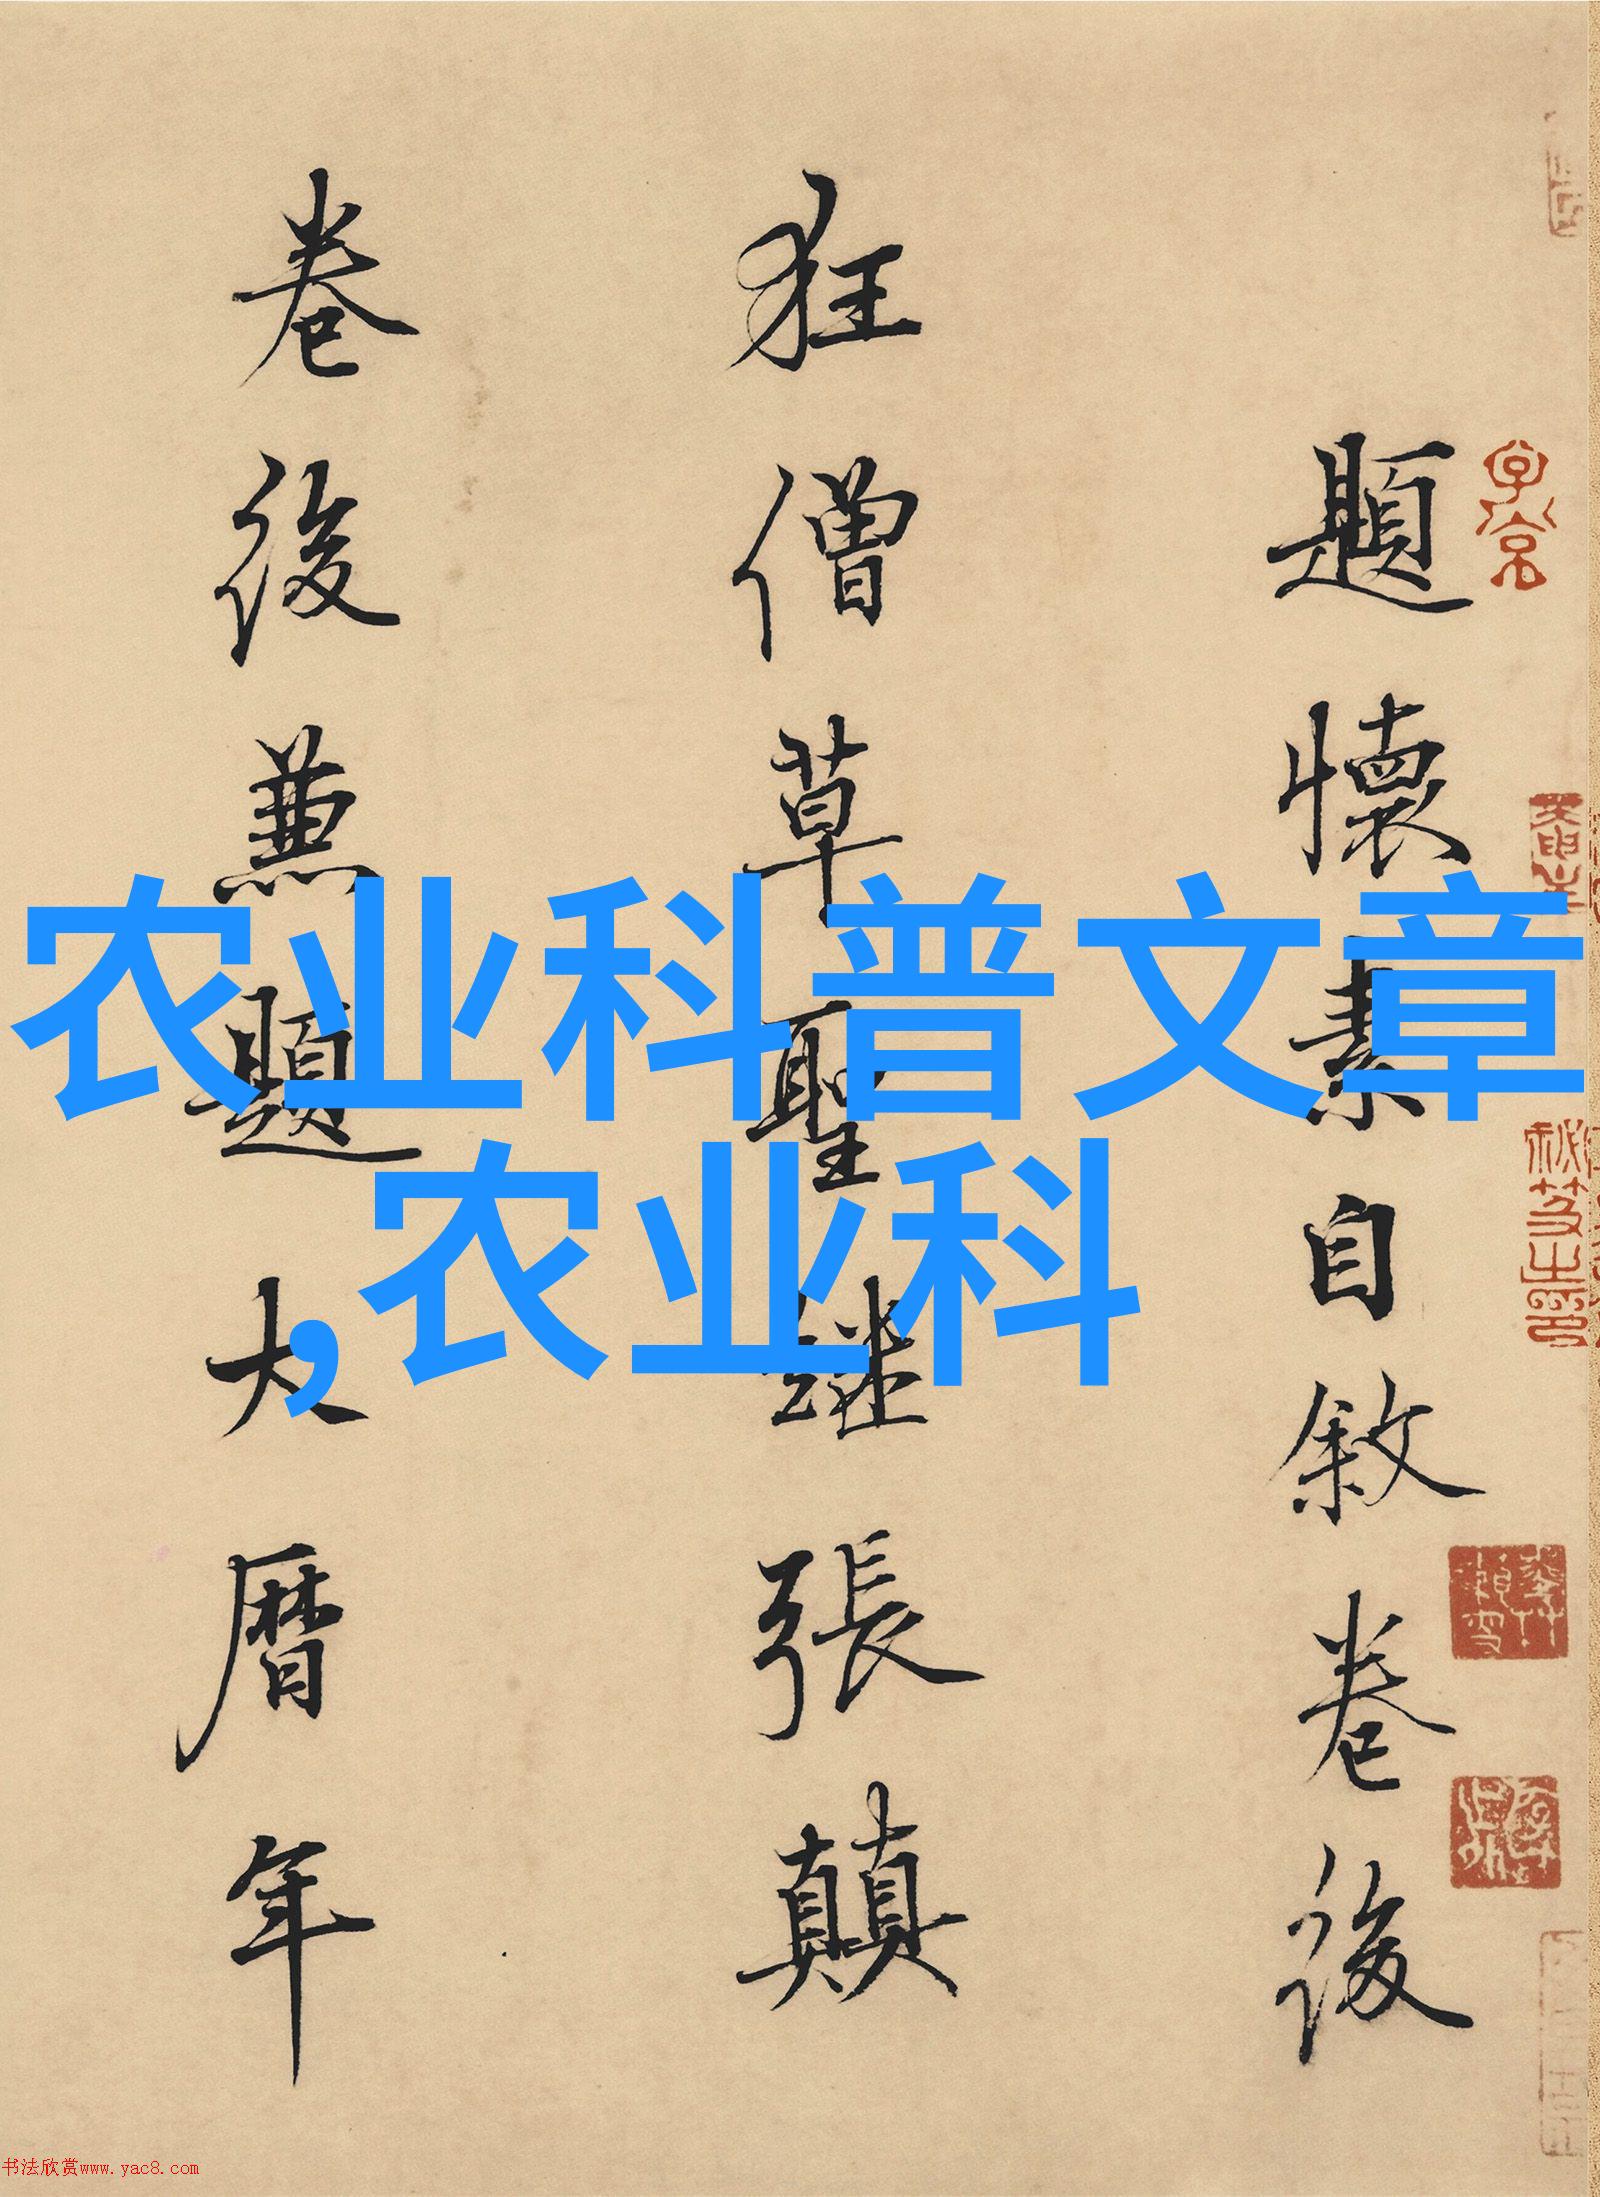 題懷素自敘卷後
狂僧草聖継張顛
卷後兼題大曆年
农业科普文章
,农业科
书法欣赏www.yac8.com